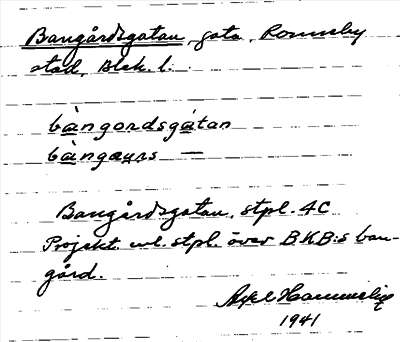 Bangårdsgatan, gata, Ronneby
stad, Blek. l.
bàngordsgátan
bàngaurs —
Bangårdsgatan, stpl. 4C
Projekt enl. stpl. över B.K.B:s ban-
gård.
Axel Hammelin
1941